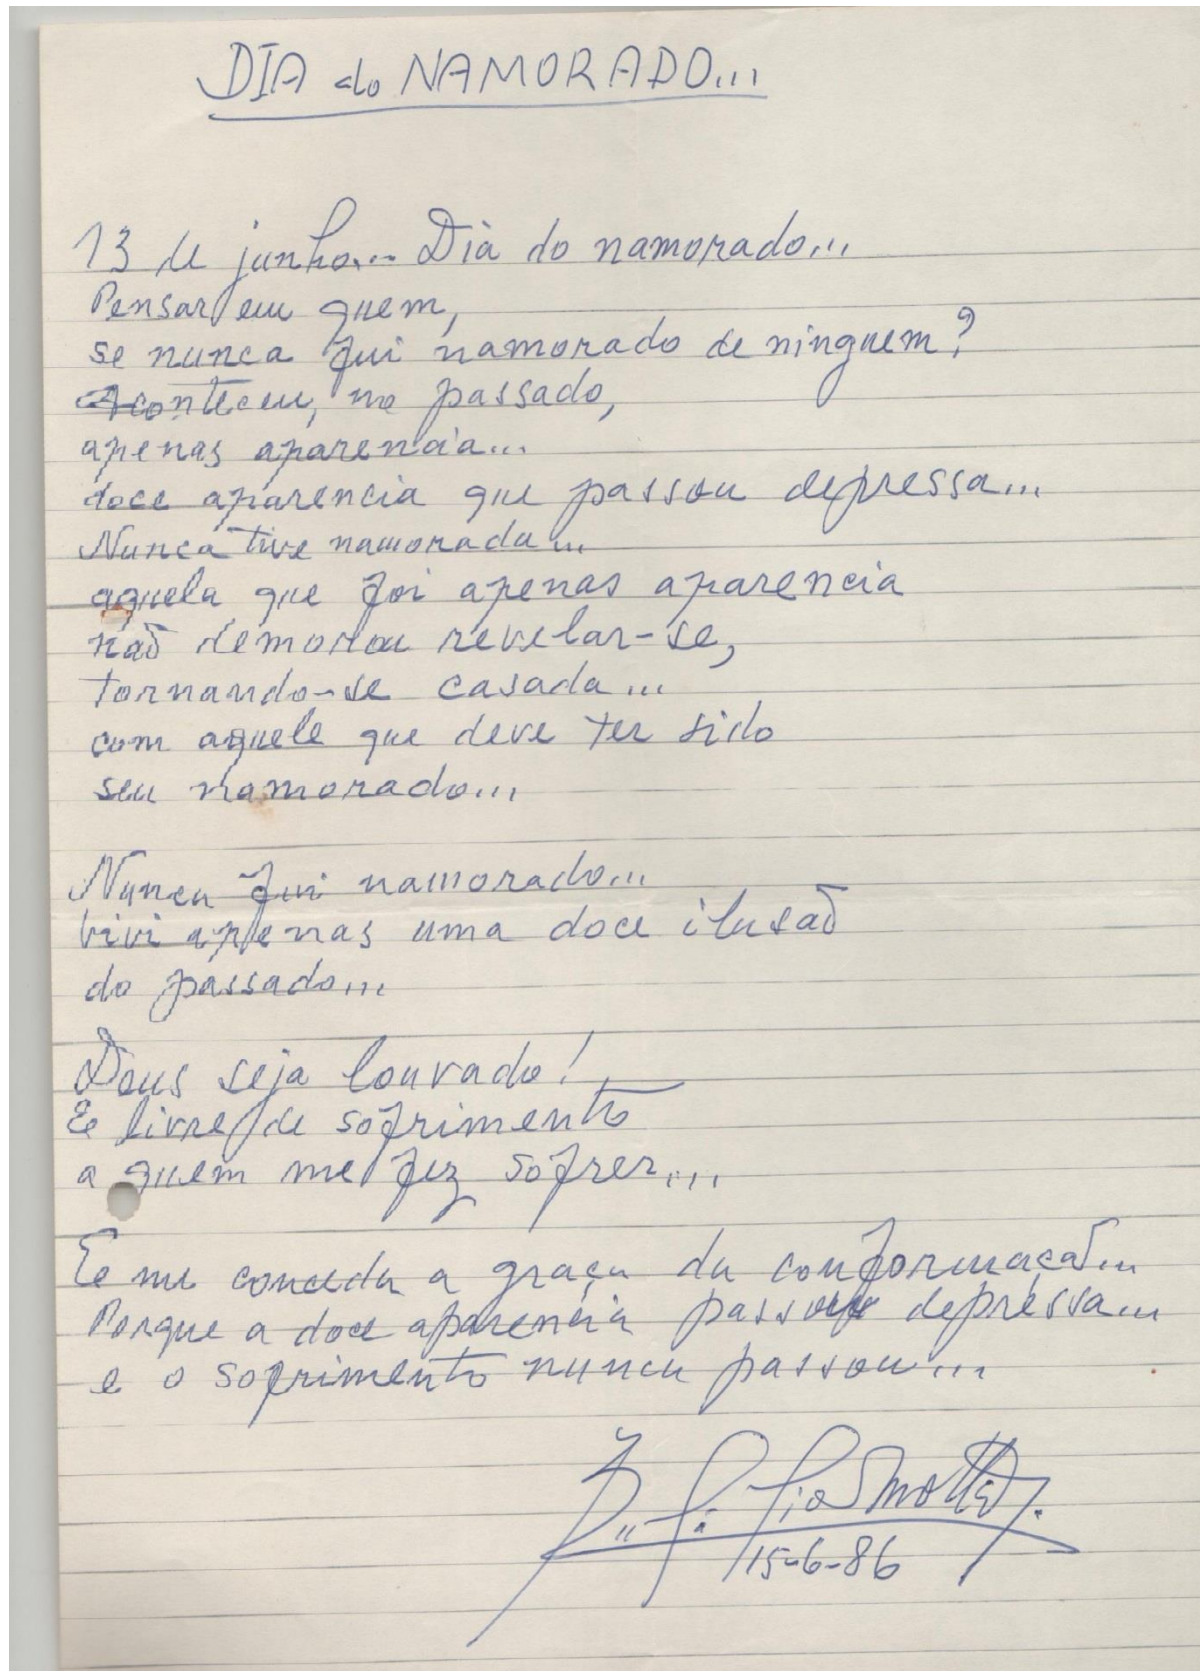 DIA do NAMORADO...
13 de junho... Dia do namorado...
Pensar em quem,
se nunca fui namorado de ninguem?
Aconteceu, no passado,
apenas aparencia...
doce aparencia que passou depressa...
Nunca tive namorada...
aquela que foi apenas aparencia
não demorou revelar-se,
tornando-se casada...
com aquele que deve ter sido
seu namorado...
Nunca fui namorado...
vivi apenas uma doce ilusão
do passado...
Deus seja louvado!
E livre de sofrimento
a quem me fez sofrer...
E me conceda a graça da conformação...
Porque a doce aparencia passou depressa...
e o sofrimento nunca passou...
Pio Motta
15-6-86